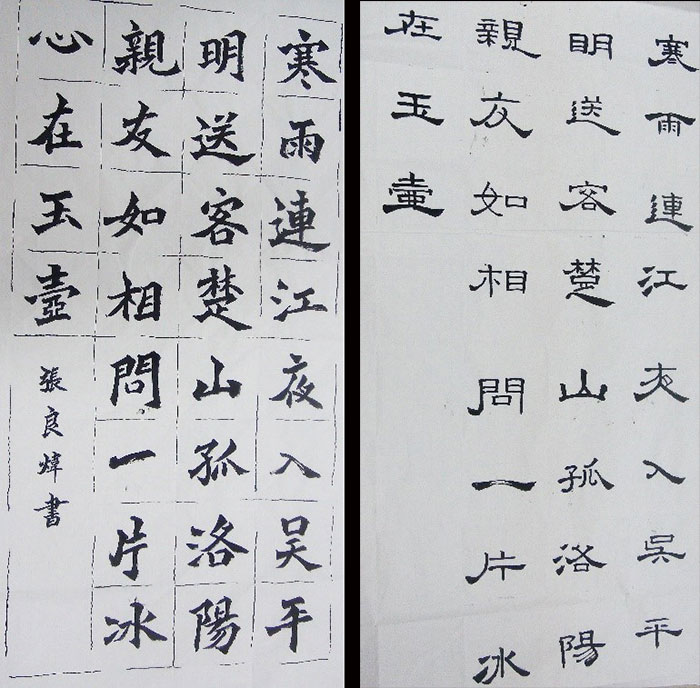 寒雨連江夜入吳平
明送客楚山孤洛陽
親友如相問一片冰
心在玉壺
張良煒書
寒雨連江夜入吳平
明送客楚山孤洛陽
親友如相問一片冰
在玉壺